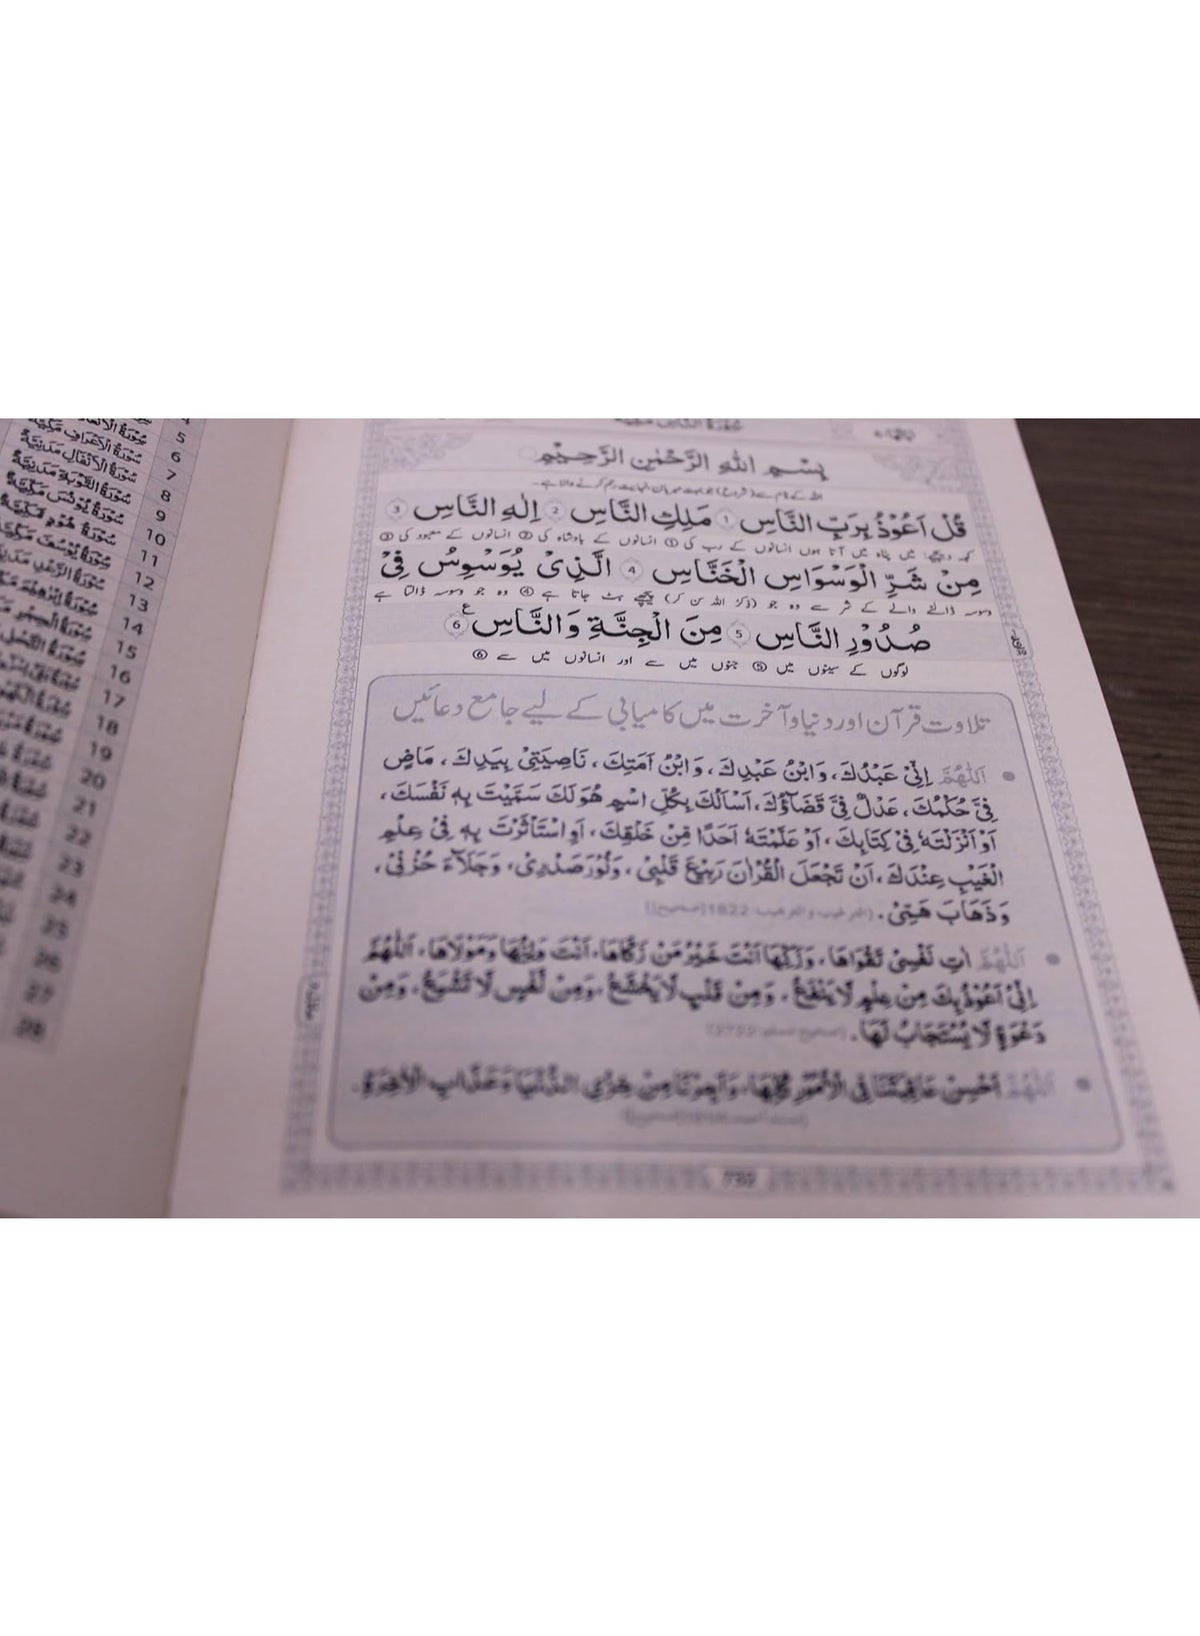 سُوْرَةُ النَّاسِ مَكِّيَّةٌ
بِسْمِ اللهِ الرَّحْمٰنِ الرَّحِيْمِ
اللہ کے نام سے (شروع) جو بہت مہربان نہایت رحم کرنے والا ہے۔
قُلْ اَعُوْذُ بِرَبِّ النَّاسِ 1 مَلِكِ النَّاسِ 2 اِلٰهِ النَّاسِ 3
کہہ دیجیے: میں پناہ میں آتا ہوں انسانوں کے رب کی ① انسانوں کے بادشاہ کی ② انسانوں کے معبود کی ③
مِنْ شَرِّ الْوَسْوَاسِ الْخَنَّاسِ 4 الَّذِيْ يُوَسْوِسُ فِيْ
وسوسہ ڈالنے والے کے شر سے وہ جو (ذکر اللہ سن کر) پیچھے ہٹ جاتا ہے ④ وہ جو وسوسہ ڈالتا ہے
صُدُوْرِ النَّاسِ 5 مِنَ الْجِنَّةِ وَالنَّاسِ 6 ع
لوگوں کے سینوں میں ⑤ جنوں میں سے اور انسانوں میں سے ⑥
تلاوت قرآن اور دنیا و آخرت میں کامیابی کے لیے جامع دعائیں
● اَللّٰهُمَّ اِنِّيْ عَبْدُكَ، وَابْنُ عَبْدِكَ، وَابْنُ اَمَتِكَ، نَاصِيَتِيْ بِيَدِكَ، مَاضٍ
فِيَّ حُكْمُكَ، عَدْلٌ فِيَّ قَضَاؤُكَ، اَسْاَلُكَ بِكُلِّ اسْمٍ هُوَ لَكَ سَمَّيْتَ بِهٖ نَفْسَكَ،
اَوْ اَنْزَلْتَهٗ فِيْ كِتَابِكَ، اَوْ عَلَّمْتَهٗ اَحَدًا مِّنْ خَلْقِكَ، اَوِ اسْتَاْثَرْتَ بِهٖ فِيْ عِلْمِ
الْغَيْبِ عِنْدَكَ، اَنْ تَجْعَلَ الْقُرْاٰنَ رَبِيْعَ قَلْبِيْ، وَنُوْرَ صَدْرِيْ، وَجَلَآءَ حُزْنِيْ،
وَذَهَابَ هَمِّيْ. (الترغيب والترهيب: 1822 [صحيح])
● اَللّٰهُمَّ اٰتِ نَفْسِيْ تَقْوَاهَا، وَزَكِّهَا اَنْتَ خَيْرُ مَنْ زَكَّاهَا، اَنْتَ وَلِيُّهَا وَمَوْلَاهَا، اَللّٰهُمَّ
اِنِّيْ اَعُوْذُ بِكَ مِنْ عِلْمٍ لَا يَنْفَعُ، وَمِنْ قَلْبٍ لَا يَخْشَعُ، وَمِنْ نَّفْسٍ لَا تَشْبَعُ، وَمِنْ
دَعْوَةٍ لَا يُسْتَجَابُ لَهَا. (صحيح مسلم: 2722)
● اَللّٰهُمَّ اَحْسِنْ عَاقِبَتَنَا فِي الْاُمُوْرِ كُلِّهَا، وَاَجِرْنَا مِنْ خِزْيِ الدُّنْيَا وَعَذَابِ الْاٰخِرَةِ.
5
سُوْرَةُ الْاَعْرَافِ مَكِّيَّةٌ 6
سُوْرَةُ الْاَنْفَالِ مَدَنِيَّةٌ 7
سُوْرَةُ التَّوْبَةِ مَدَنِيَّةٌ 8
سُوْرَةُ يُوْنُسَ مَكِّيَّةٌ 9
سُوْرَةُ هُوْدٍ مَكِّيَّةٌ 10
سُوْرَةُ يُوْسُفَ 11
سُوْرَةُ الرَّعْدِ 12
سُوْرَةُ اِبْرٰهِيْمَ 13
سُوْرَةُ الْحِجْرِ 14
سُوْرَةُ النَّحْلِ 15
16
17
18
19
20
21
22
23
24
25
26
27
28